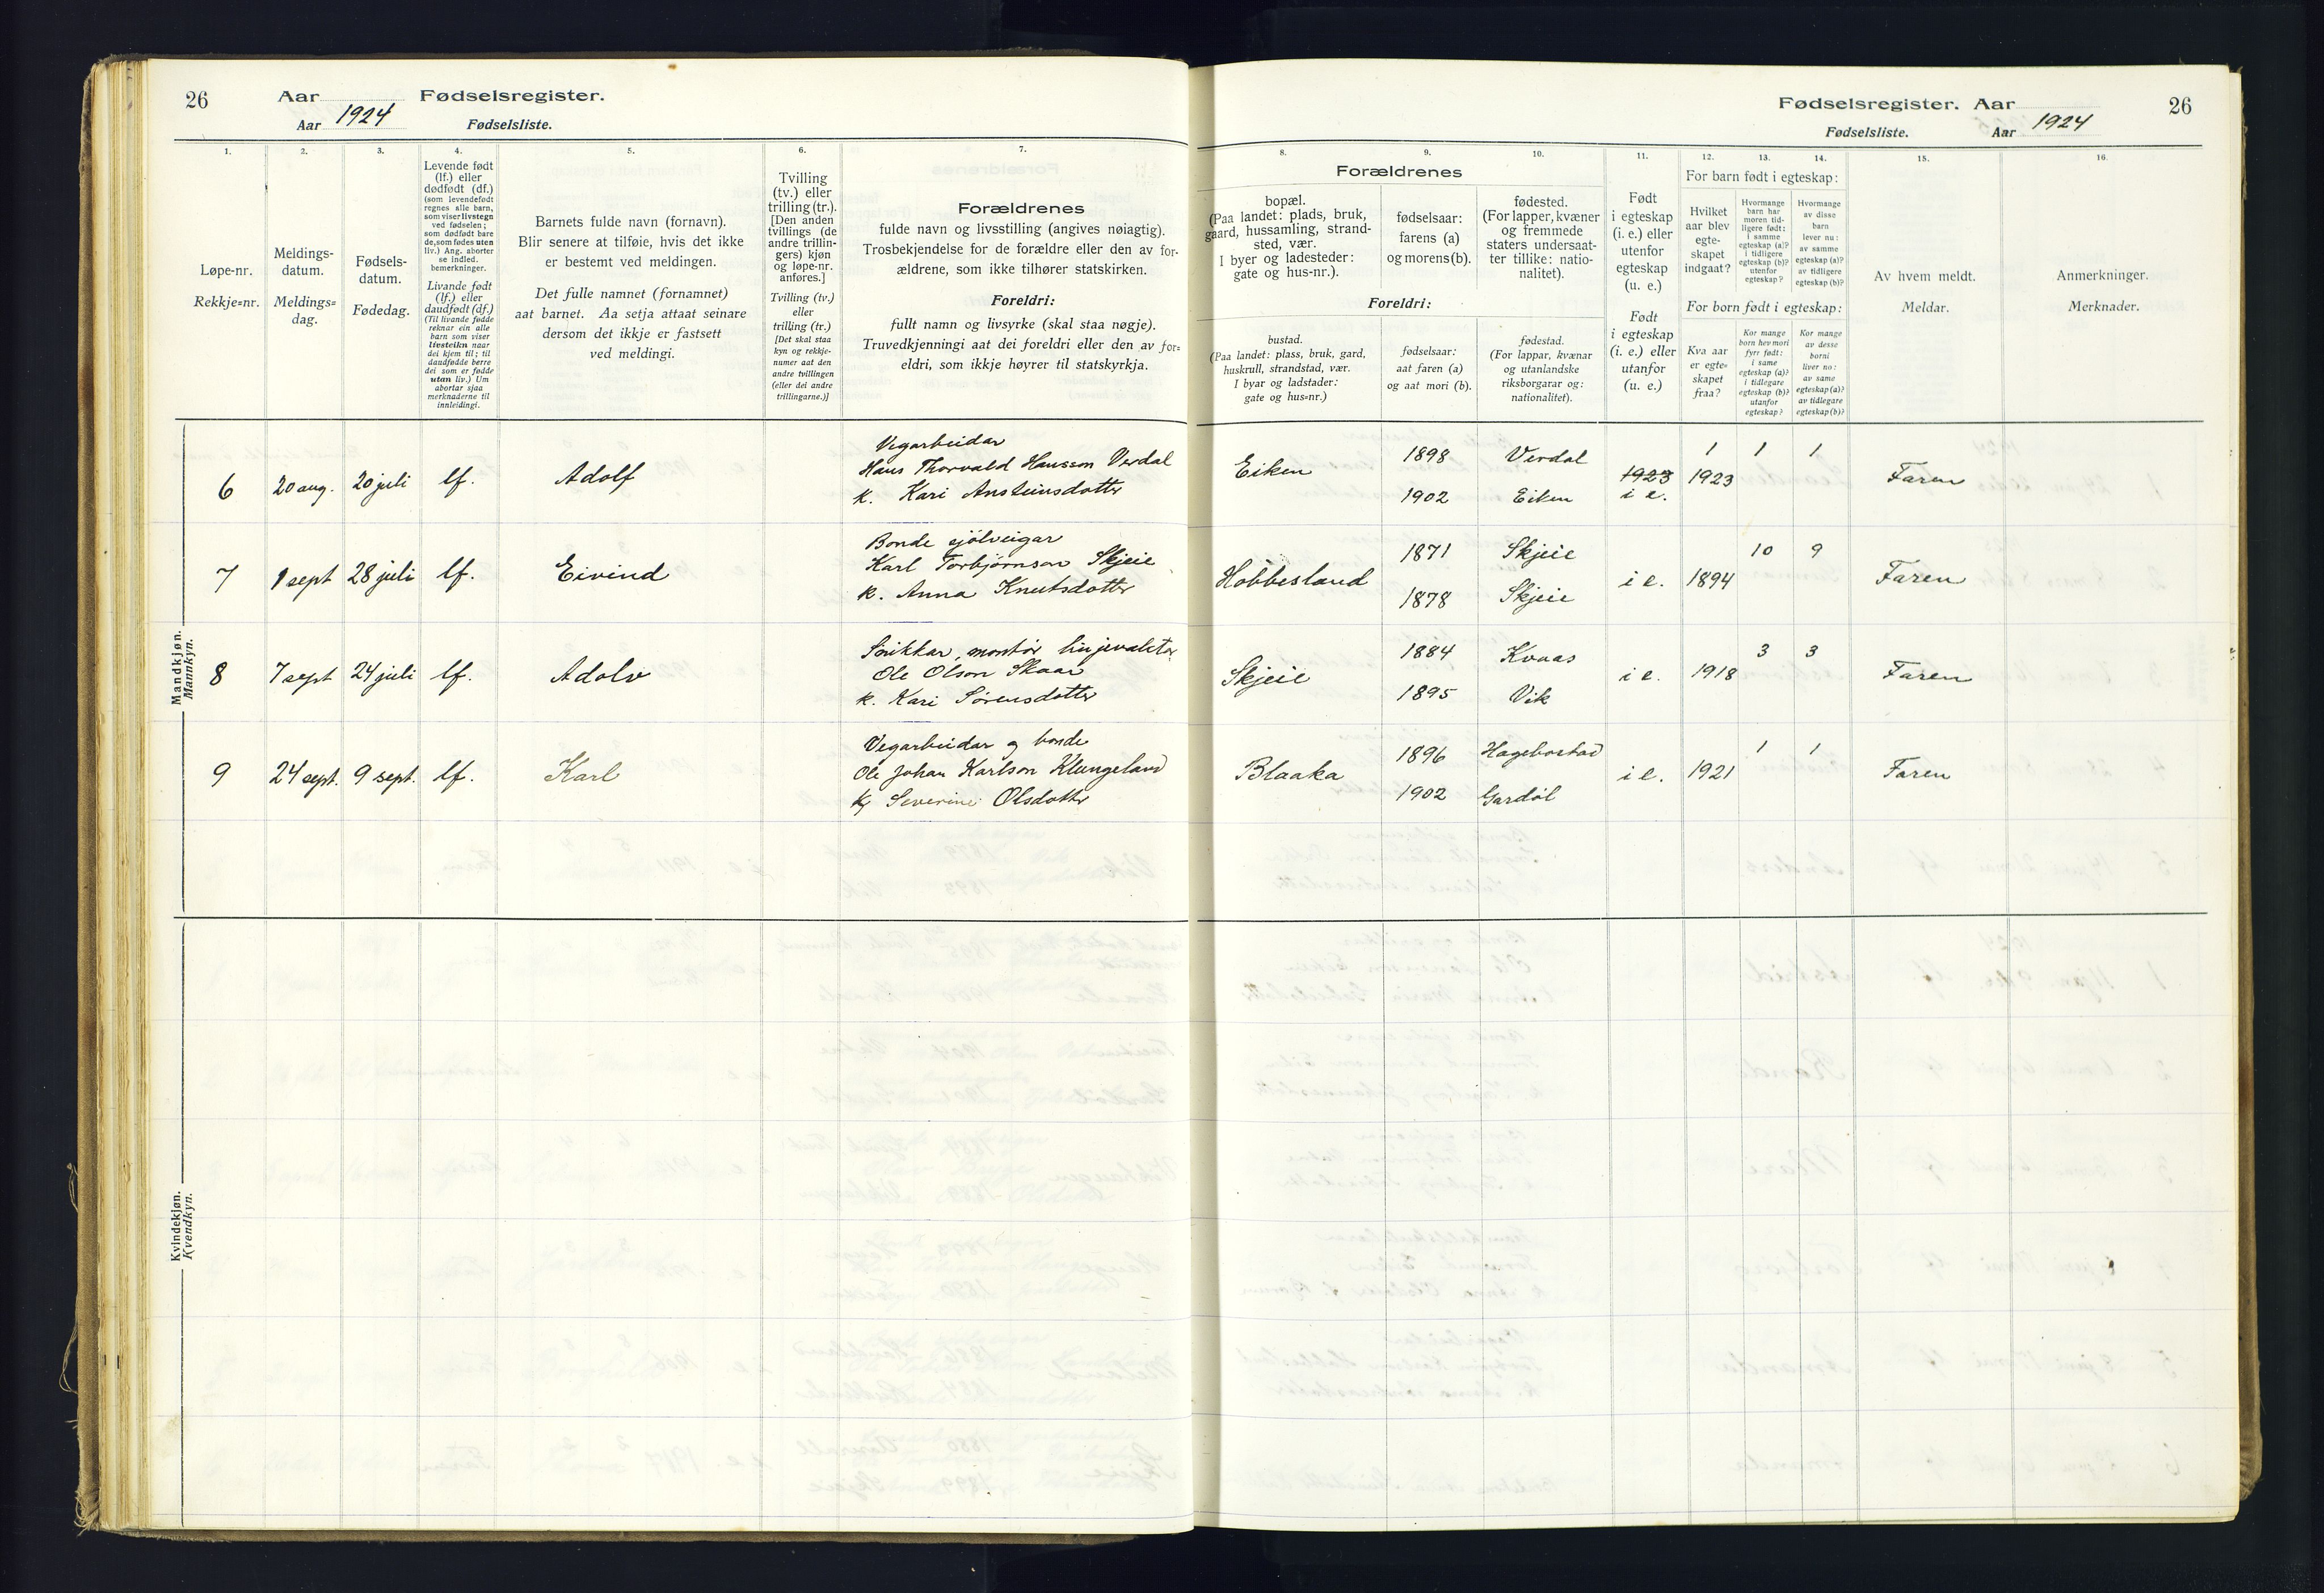 26 Aar Fødselsregister.
Aar 1924 Fødselsliste.
Fødselsregister. Aar 26
Fødselsliste. Aar 1924
1. 2. 3. 4. 5. 6. 7. 8. 9. 10. 11. 12. 13. 14. 15. 16.
Løpe-nr.
Rekkje=nr.
Meldings-
datum.
Meldings=
dag.
Fødsels-
datum.
Fødedag.
Levende født
(lf.) eller
dødfødt (df.)
(som levendefødt
regnes alle barn,
som viser livstegn
ved fødselen;
som dødfødt bare
de, som fødes uten
liv.) Ang. aborter
se indled.
bemerkninger.
Livande født
(lf.) eller
daudfødt (df.)
(Til livande fødde
reknar ein alle
barn som viser
livsteikn naar
dei kjem til; til
daudfødde berre
dei som er fødde
utan liv.) Um
abortar sjaa
merknaderne til
innleidingi.
Barnets fulde navn (fornavn).
Blir senere at tilføie, hvis det ikke
er bestemt ved meldingen.
Det fulle namnet (fornamnet)
aat barnet. Aa setja attaat seinare
dersom det ikkje er fastsett
ved meldingi.
Tvilling
(tv.) eller
trilling (tr.).
[Den anden
tvillings (de
andre trillin-
gers) kjøn
og løpe-nr.
anføres.]
Tvilling (tv.)
eller
trilling (tr.)
[Det skal staa
kyn og rekkje-
numer aat den
andre tvillingen
(eller dei andre
trillingarne.)]
Forældrenes
fulde navn og livsstilling (angives nøiagtig).
Trosbekjendelse for de forældre eller den av for-
ældrene, som ikke tilhører statskirken.
Foreldri:
fullt namn og livsyrke (skal staa nøgje).
Truvedkjenningi aat dei foreldri eller den av for=
eldri, som ikkje høyrer til statskyrkja.
Forældrenes
bopæl.
(Paa landet: plads, bruk,
gaard, hussamling, strand-
sted, vær.
I byer og ladesteder:
gate og hus-nr.).
fødselsaar:
farens (a)
og morens (b).
fødested.
(For lapper, kvæner
og fremmede
staters undersaat-
ter tillike: natio-
nalitet).
Foreldri:
bustad.
(Paa landet: plass, bruk, gard,
huskrull, strandstad, vær.
I byar og ladstader:
gate og hus=nr.)
fødselsaar:
aat faren (a)
og aat mori (b).
fødestad.
(For lappar, kvænar
og utanlandske
riksborgarar og:
nationalitet).
Født
i egteskap
(i. e.) eller
utenfor
egteskap
(u. e.)
Født
i egteskap
(i. e.) eller
utanfor
(u. e.)
For barn født i egteskap:
Hvilket
aar blev
egte-
skapet
indgaat?
Hvormange
barn har
moren tid-
ligere født:
i samme
egteskap (a)?
i tidligere
egteskap (b)?
utenfor
egteskap?
Hvormange
av disse
barn
lever nu:
av samme
egteskap (a)?
av tidligere
egteskap (b)?
For born født i egteskap:
Kva aar
er egte=
skapet
fraa?
Kor mange
born hev mori
fyrr født:
i same
egteskap (a)?
i tidlegare
egteskap (b)?
utanfor
egteskap?
Kor mange
av desse
borni
liver no:
av same
egteskap (a)?
av tidlegare
egteskap (b)?
Av hvem meldt.
Meldar.
Anmerkninger.
Merknader.
Mandkjøn.
Mannkyn.
Vegarbeidar
6 20 aug. 20 juli lf. Adolf Hans Thorvald Hansson Verdal Eiken 1898 Verdal 1923 1923 1 1 1 Faren
k. Kari Ansteinsdotter 1902 Eiken i e.
Bonde sjölveigar
7 1 sept 28 juli lf. Eivind Karl Torbjørnson Skjeie Høbbesland 1871 Skjeie i e. 1894 10 9 Faren
k. Anna Knutsdotter 1878 Skjeie
Snikkar, montør
8 7 sept 24 juli lf. Adolv Ole Olson Skaar Skjeie 1884 Kvaas i e. 1918 3 3 Faren
k. Kari Sørensdotter 1895 Vik
Vegarbeidar og bonde
9 24 sept. 9 sept. lf. Karl Ole Johan Karlson Klungeland Blaaka 1896 Hægebostad i e. 1921 1 1 Faren
k. Severine Olsdotter 1902 Gardöl
Kvindekjøn.
Kvendkyn.